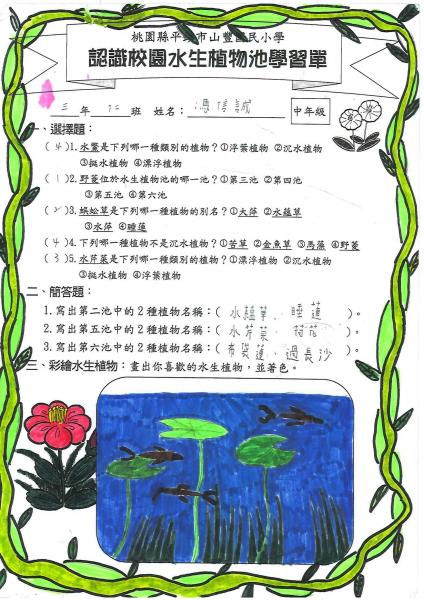 桃園縣平鎮市山豐國民小學
認識校園水生植物池學習單
三 年 十二 班 姓名：馮信誠 中年級
一、選擇題：
(4)1.水鱉是下列哪一種類別的植物？①浮葉植物 ②沉水植物
③挺水植物 ④漂浮植物
(1)2.野菱位於水生植物池的哪一池？①第三池 ②第四池
③第五池 ④第六池
(2)3.蜈蚣草是下列哪一種植物的別名？①大萍 ②水蘊草
③水萍 ④睡蓮
(4)4.下列哪一種植物不是沉水植物？①苦草 ②金魚草 ③馬藻 ④野菱
(3)5.水芹菜是下列哪一種類別的植物？①漂浮植物 ②沉水植物
③挺水植物 ④浮葉植物
二、簡答題：
1.寫出第二池中的2種植物名稱：(水蘊草、睡蓮)。
2.寫出第四池中的2種植物名稱：(水芹菜、荷花)。
3.寫出第六池中的2種植物名稱：(布袋蓮、過長沙)。
三、彩繪水生植物：畫出你喜歡的水生植物，並著色。